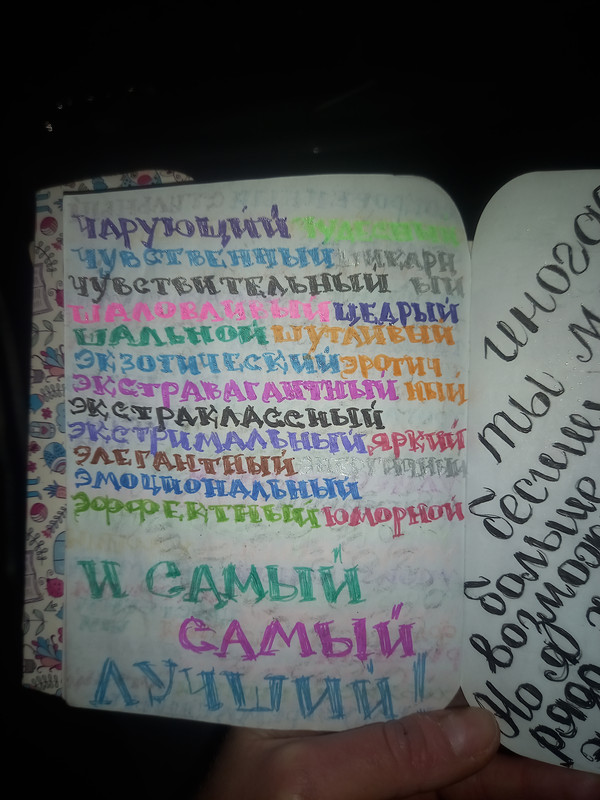 ЧАРУЮЩИЙ ЧУДЕСНЫЙ
ЧУВСТВЕННЫЙ ШИКАРН
ЧУВСТВИТЕЛЬНЫЙ ЫЙ
ШАЛОВЛИВЫЙ ЩЕДРЫЙ
ШАЛЬНОЙ ШУТЛИВЫЙ
ЭКЗОТИЧЕСКИЙ ЭРОТИЧ
ЭКСТРАВАГАНТНЫЙ НЫЙ
ЭКСТРАКЛАССНЫЙ
ЭКСТРИМАЛЬНЫЙ ЯРКИЙ
ЭЛЕГАНТНЫЙ
ЭМОЦИОНАЛЬНЫЙ
ЭФФЕКТНЫЙ ЮМОРНОЙ
И САМЫЙ
САМЫЙ
ЛУЧШИЙ!
иногда
ты
больше
Но я